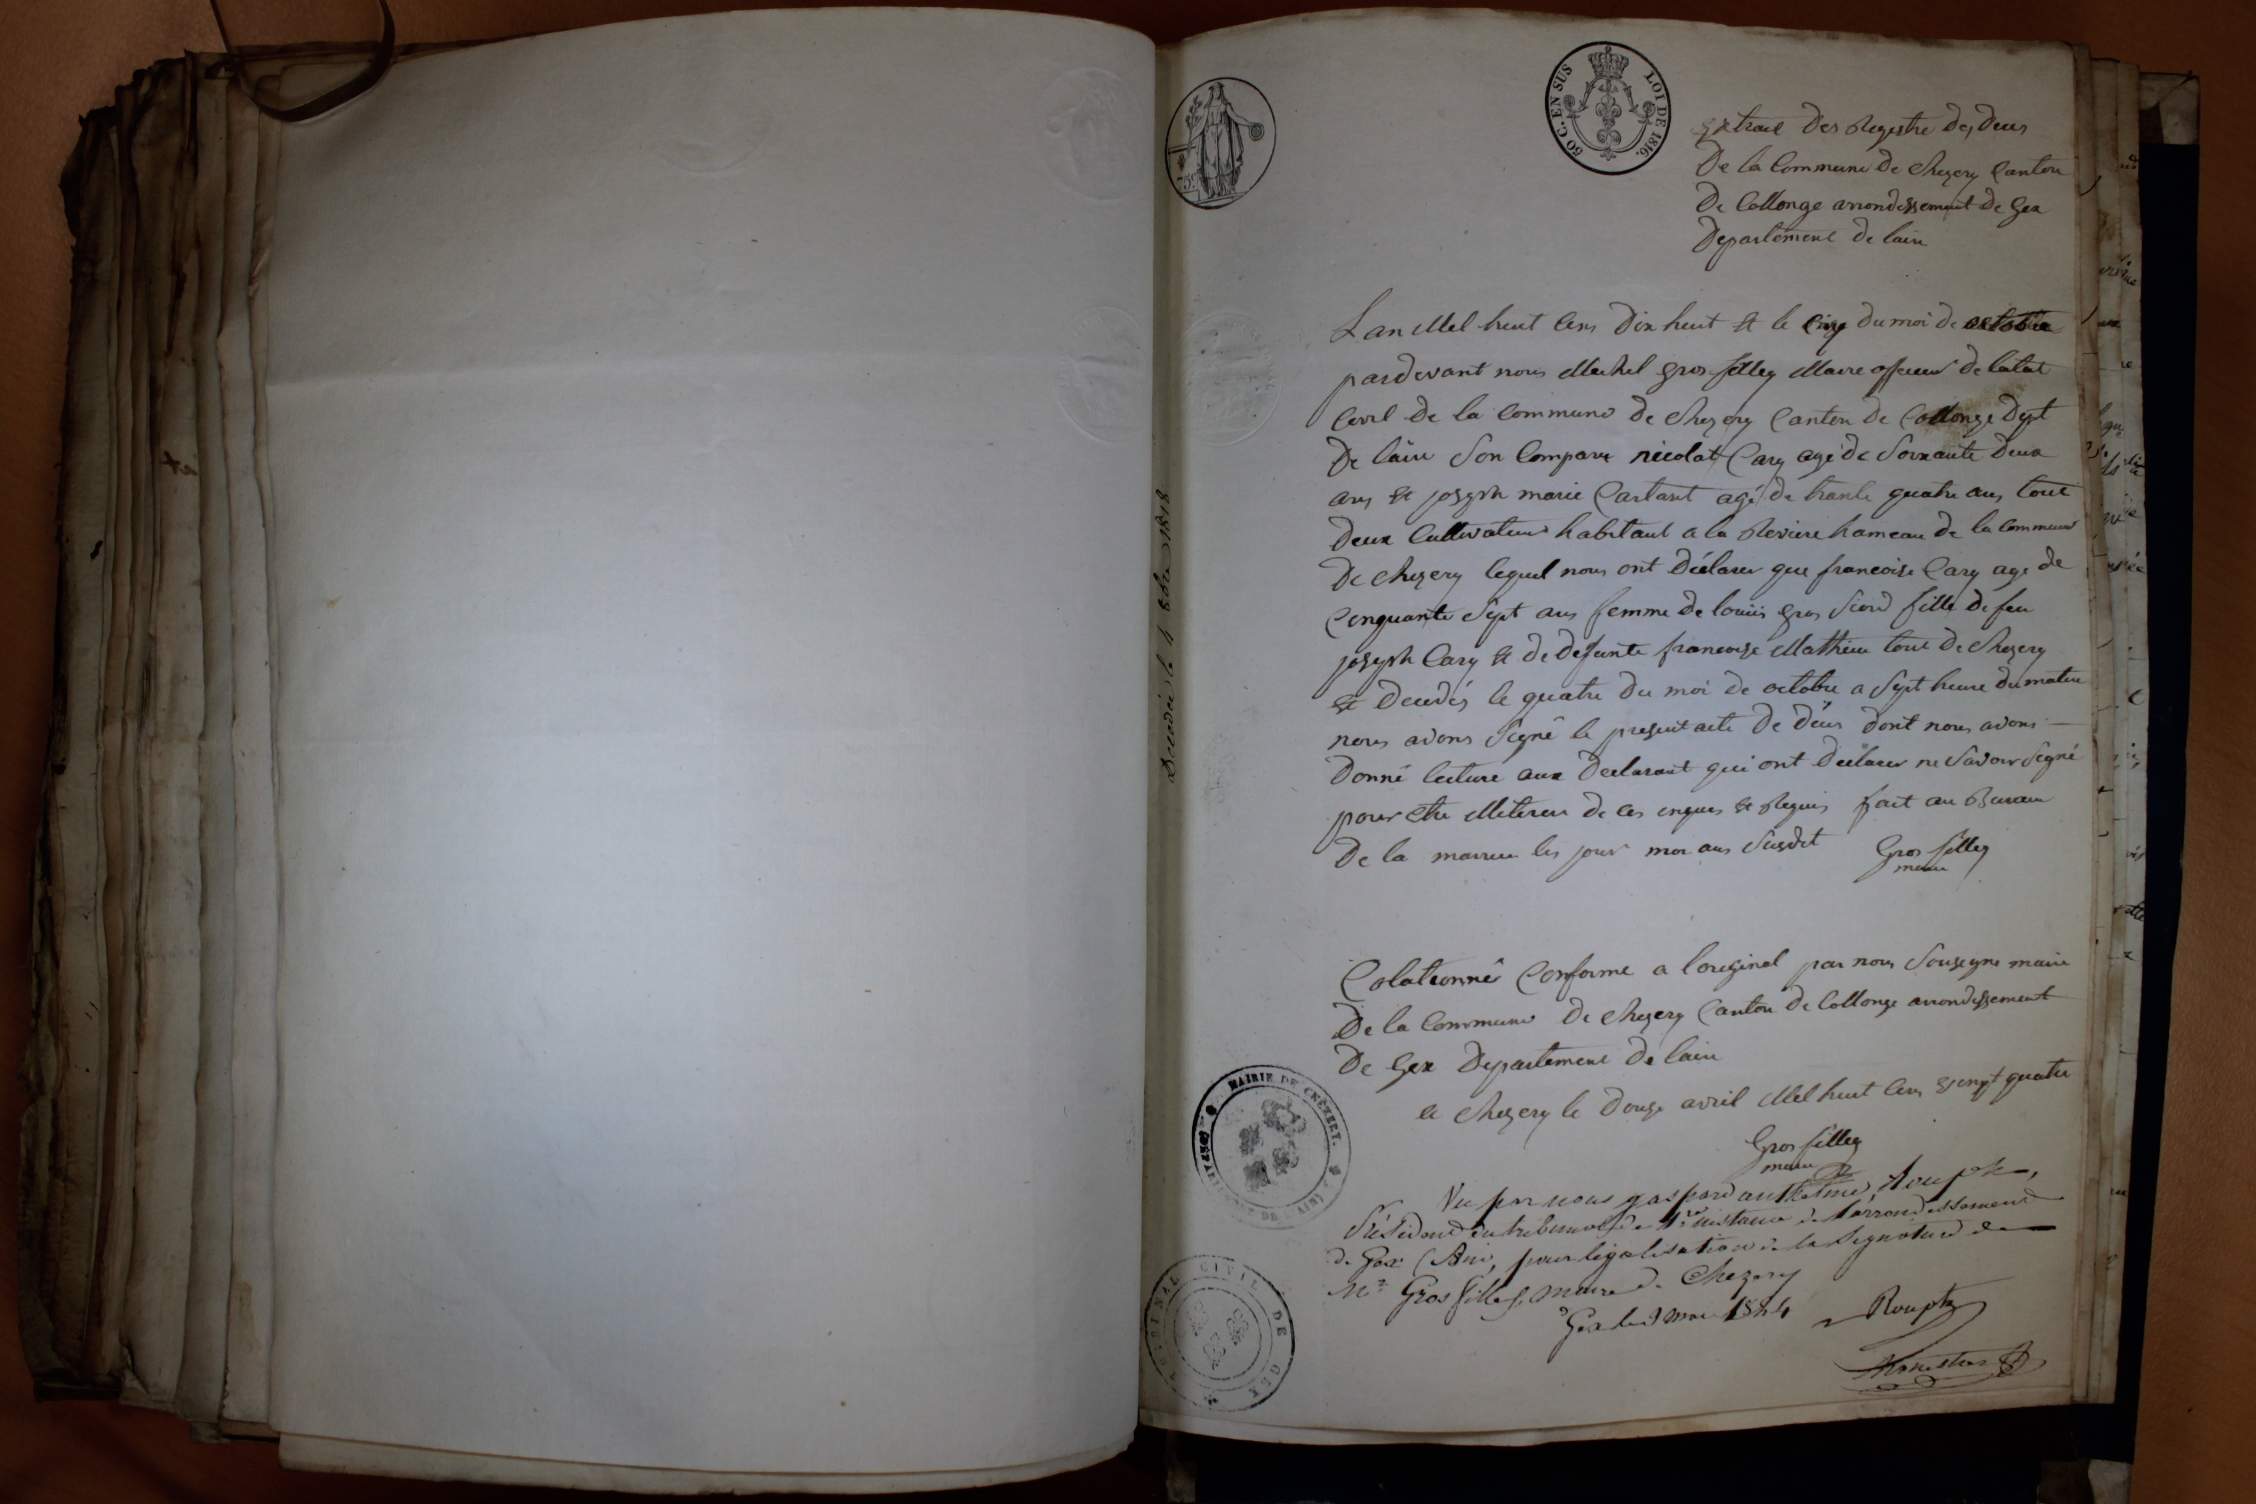 Décédée le 4 8bre 1818
50 C. EN SUS LOI DE 1816.
Extrait Des Registre De Deces
De la Commune de Chezery Canton
De Collonge arrondissement de Gex
Departement de lain
Lan Mel huit Cens Dix huit et le Cinq du moi de octobre
pardevant nous Michel gros filley Maire officier de letat
Civil De la Commune de Chezery Canton de Collonge Dept
De lain Son Comparu nicolat Cary agé de Soixante Deux
ans et joseph marie Castant agé de trante quatre ans tout
Deux Cultivateur habitant a la Reviere hameau de la Commune
De chezery lequel nous ont Déclarer que francoise Cary age de
Cenquante Sept ans femme de louiis gros fille de feu
joseph Cary et de Defunte francoise Mathieu tout de Chezery
et Decedés le quatre du moi de octobre a Sept heure du matin
nous avons Segné le present acte De Déces dont nous avons
Donné lecture aux Declarant qui ont Déclarer ne Savoir Segné
pour etre de ces enques et Requis fait au Bureau
De la mairie les jour moi ans Susdit
Gros filley
maire
Colationné Conforme a loreginal par nous Sousegne maire
De la Commune De chezery Canton de Collonge arrondissement
De Gex Departement De lain
a Chezery le Douze avril Mel huit Cens vempt quatre
Gros filley
maire
Vu par nous gaspard anthelme Rouph,
Président du tribunal de 1re instance de l'arrondissement
de Gex (Ain, pour légalisation de la Signature de
Mr Gros filley, maire de Chezery
Gex le 3 mai 1824
Rouph
MAIRIE DE CHÉZERY.
(DÉPARTEMENT DE L'AIN)
TRIBUNAL CIVIL DE GEX